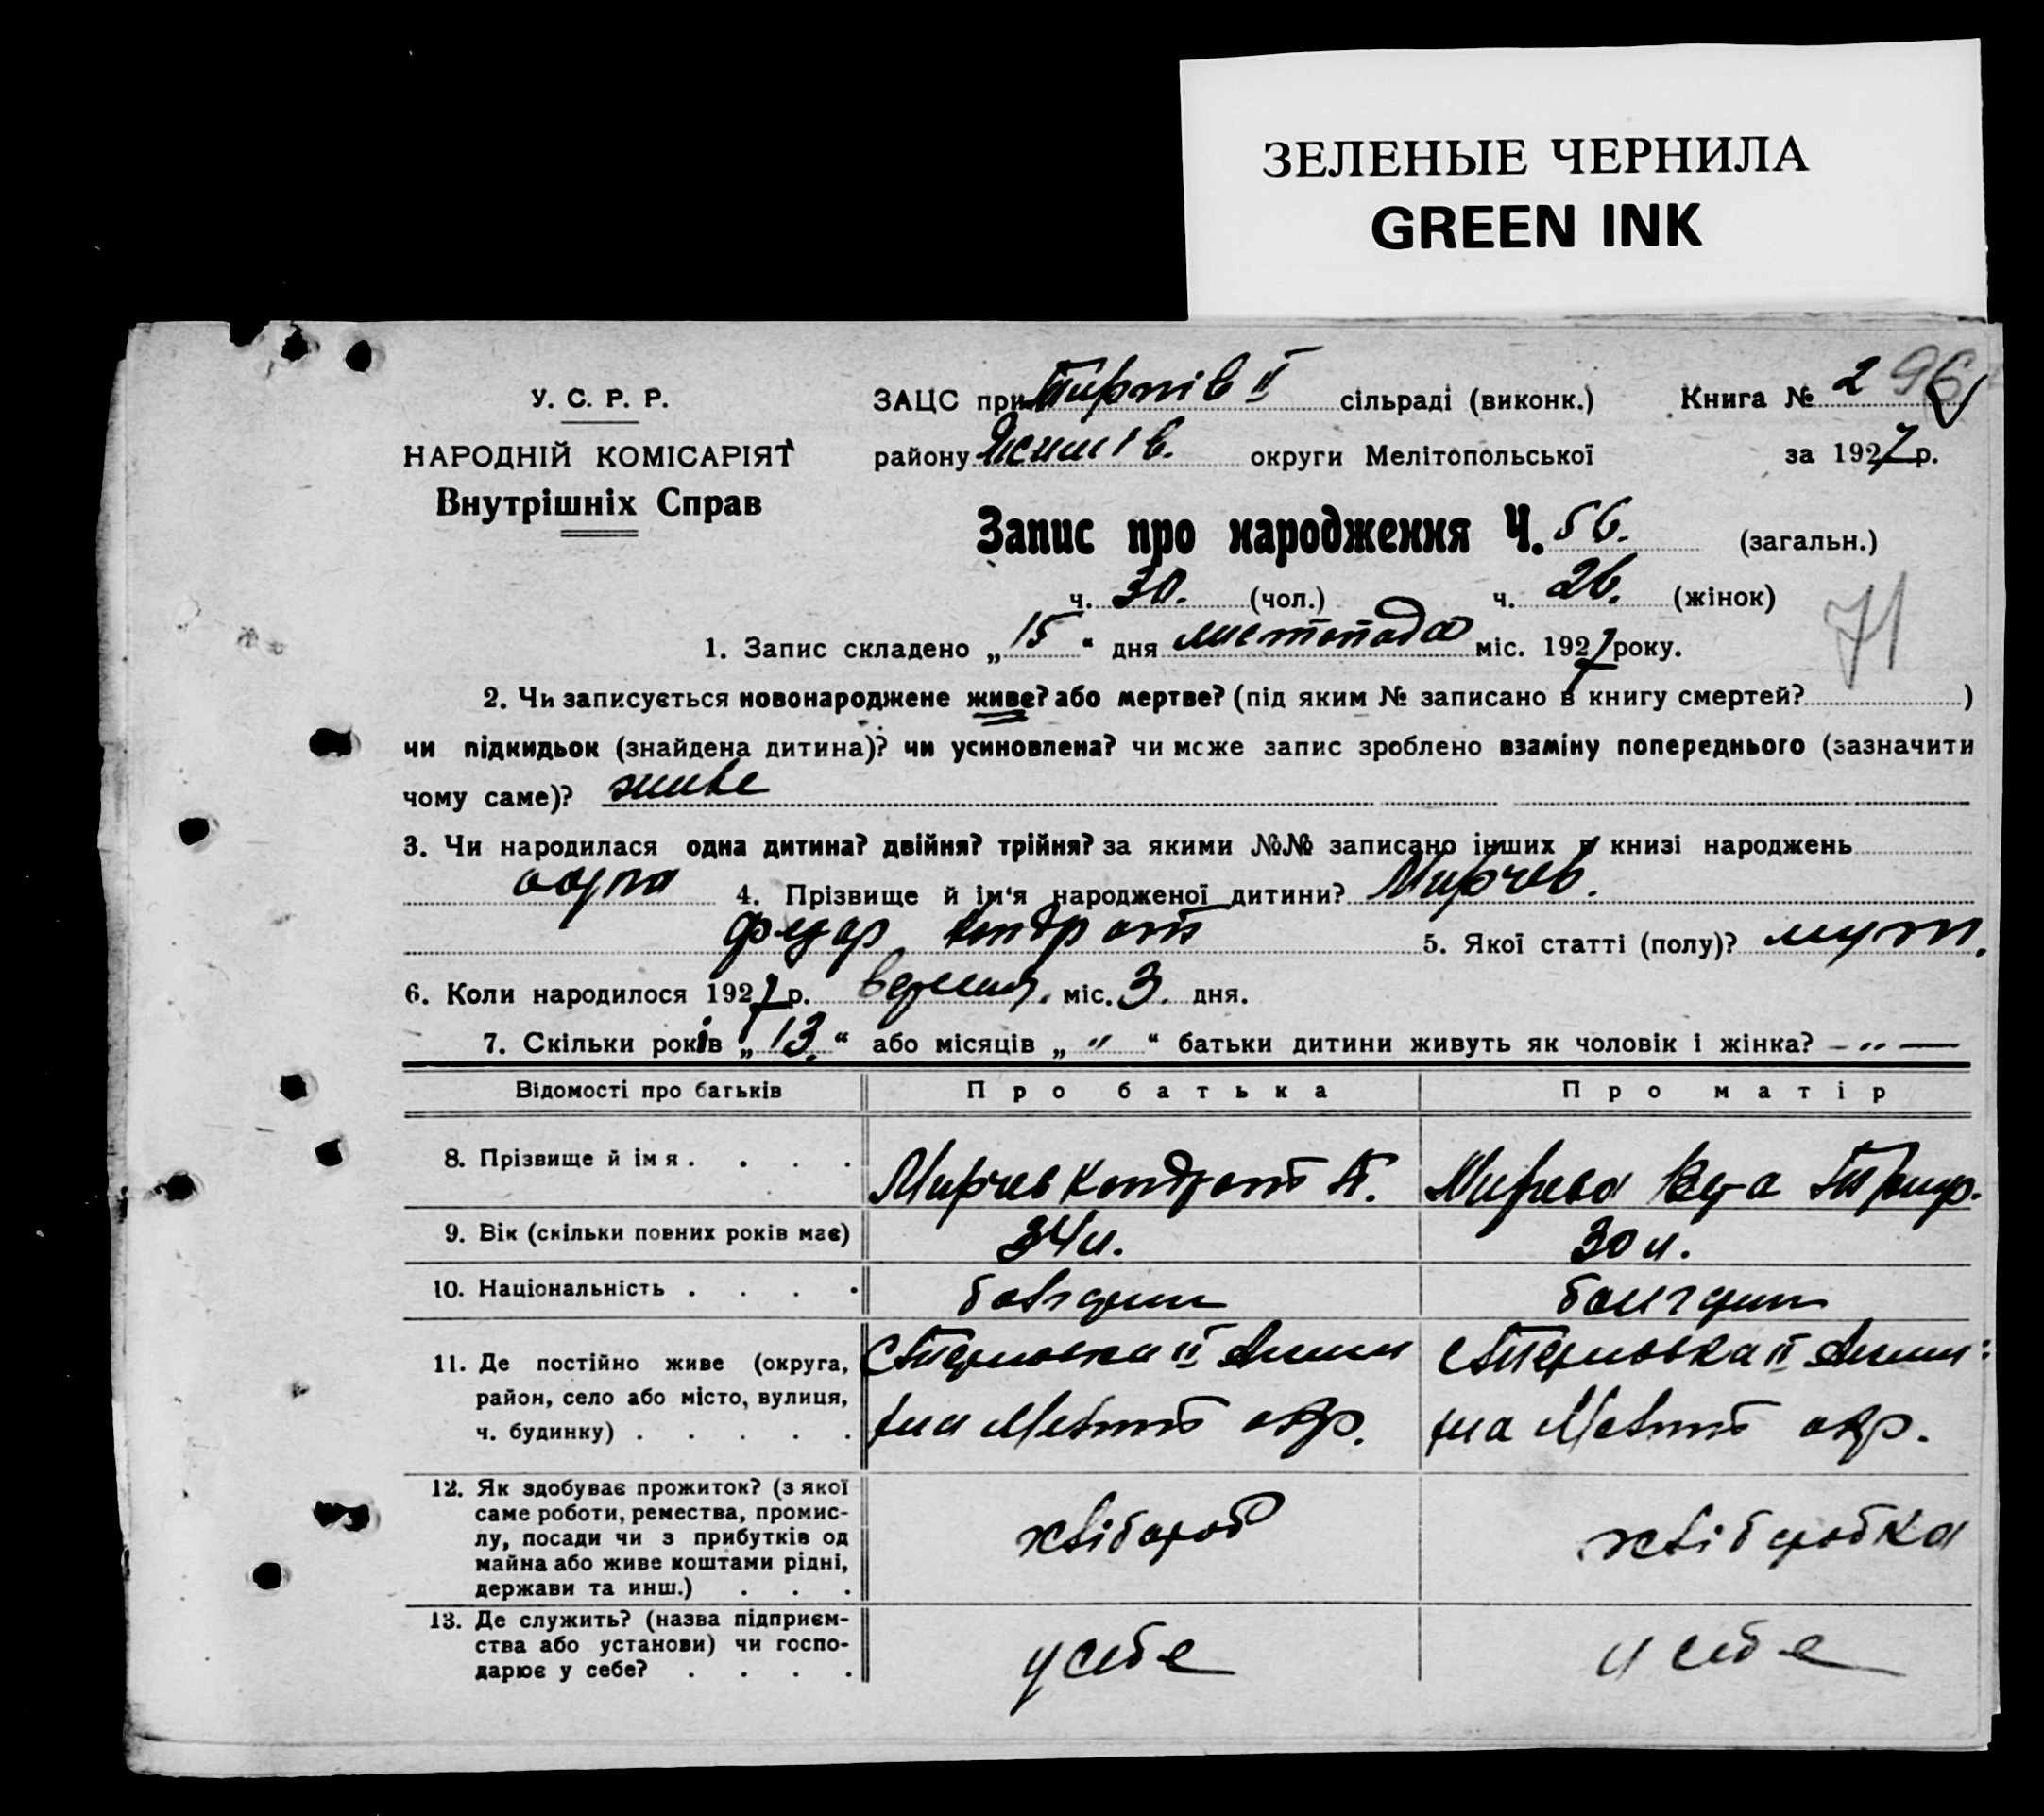 ЗЕЛЕНЫЕ ЧЕРНИЛА
GREEN INK
У. С. Р. Р.
НАРОДНІЙ КОМІСАРІЯТ
Внутрішніх Справ
ЗАЦС при Тирнів II сільраді (виконк.) Книга № 2 96
району округи Мелітопольської за 1927 р.
Запис про народження Ч. 56. (загальн.)
ч. 30. (чол.) ч. 26. (жінок)
71
1. Запис складено „15“ дня листопада міс. 1927 року.
2. Чи записується новонароджене живе? або мертве? (під яким № записано в книгу смертей? )
чи підкидьок (знайдена дитина)? чи усиновлена? чи може запис зроблено взаміну попереднього (зазначити
чому саме)? живе
3. Чи народилася одна дитина? двійня? трійня? за якими №№ записано інших в книзі народжень
одна 4. Прізвище й ім'я народженої дитини? Мирчев.
Федор Кондрат 5. Якої статті (полу)?
6. Коли народилося 1927 р. вересня. міс. 3. дня.
7. Скільки років „13.“ або місяців „ " “ батьки дитини живуть як чоловік і жінка? — " —
Відомості про батьків Про батька Про матір
8. Прізвище й імя . . . . Мирчев Кондрат П. Мирчева
9. Вік (скільки повних років має) 34 л. 30 л.
10. Національність . . . . болгарин болгарин
11. Де постійно живе (округа,
район, село або місто, вулиця,
ч. будинку) . . . . .
Меліт окр. Меліт окр.
12. Як здобуває прожиток? (з якої
саме роботи, ремества, промис-
лу, посади чи з прибутків од
майна або живе коштами рідні,
держави та инш.) . . .
хлібороб хліборобка
13. Де служить? (назва підприєм-
ства або установи) чи госпо-
дарює у себе? . . . .
у себе у себе